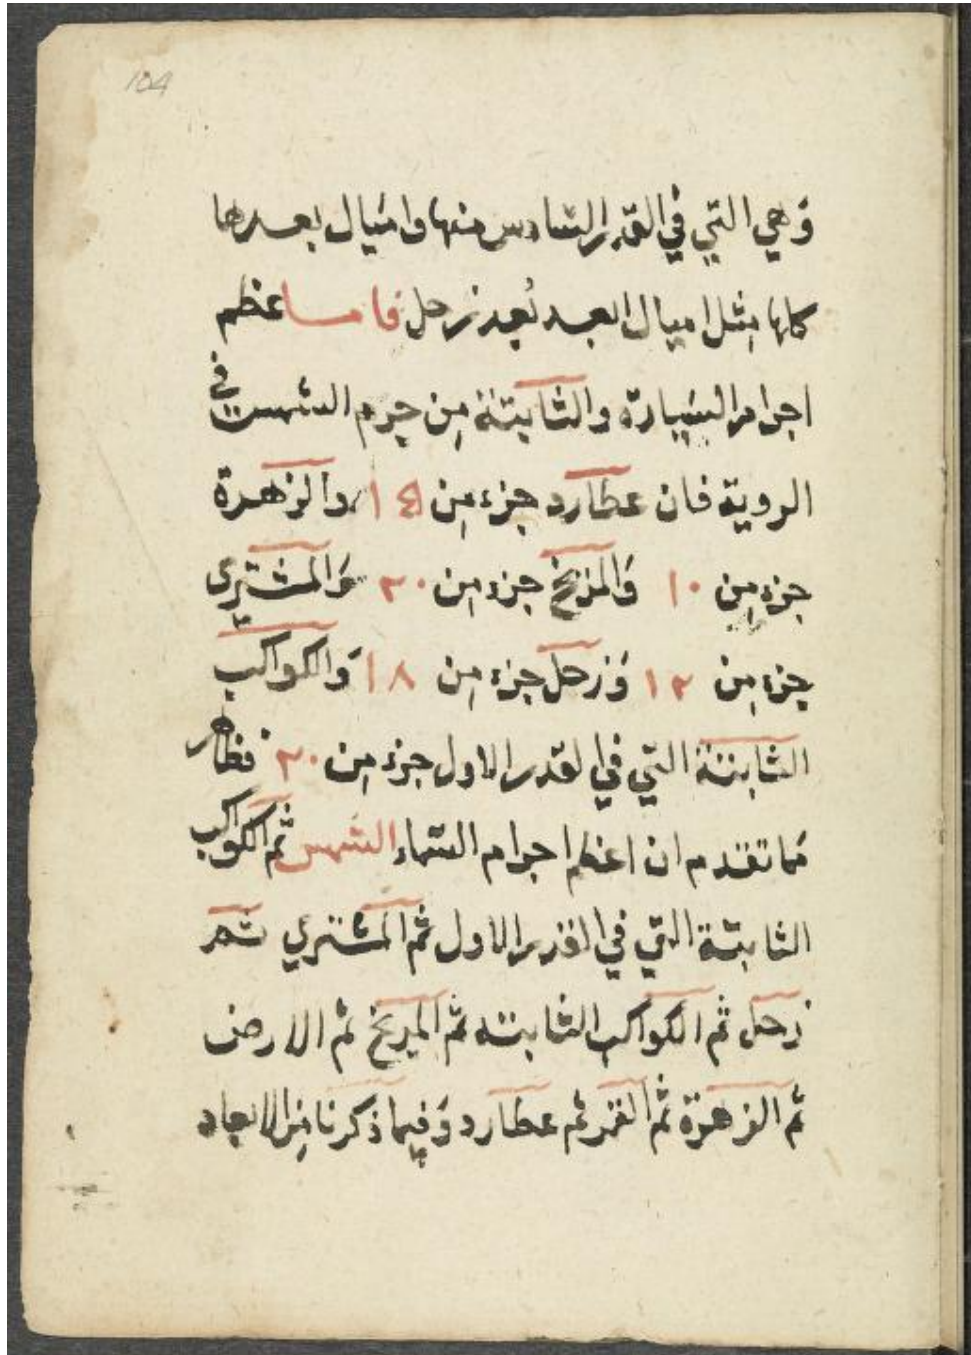 104
وَهي التي في القدر السادس منها واميال بعدها
كلها مثل اميال ابعد بُعد زحل فاما عظم
اجرام السيارة والثابتة من جرم الشمس في
الروية فان عطارد جزء من ١٤ والزهرة
جزء من ١٠ وَالمريخ جزء من ٢٠ وَالمشتري
جزء من ١٢ وَزحل جزء من ١٨ وَالكواكب
الثابتة التي في القدر الاول جزء من ٢٠ فظاهر
مما تقدم ان اعظم اجرام السماء الشمس ثم الكواكب
الثابتة التي في القدر الاول ثم المشتري ثم
زحل ثم الكواكب الثابته ثم المريخ ثم الارض
ثم الزهرة ثم القمر ثم عطارد وَفيما ذكرنا من الابعاد